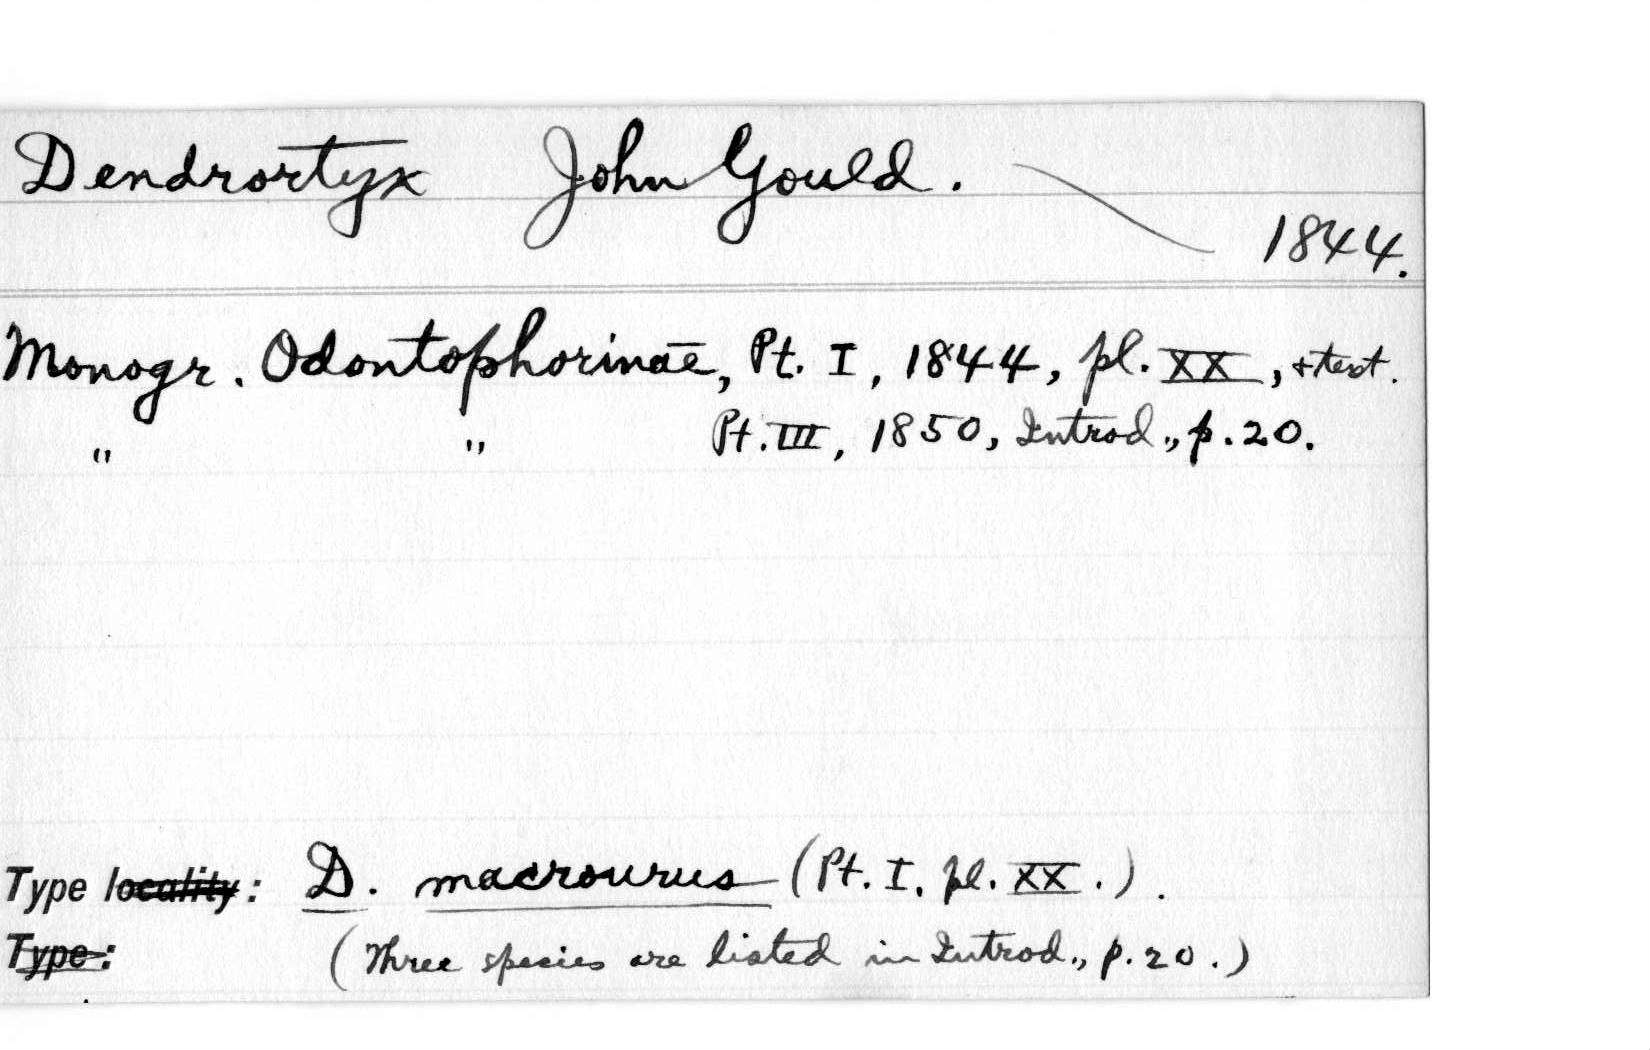 Dendrortyx John Gould.
1844.
Monogr. Odontophorinae, Pt. I, 1844, pl. XX, + text.
" " Pt. III, 1850, Introd., p. 20.
Type locality: D. macrourus (Pt. I, pl. XX.).
Type: (Three species are listed in Introd., p. 20.)